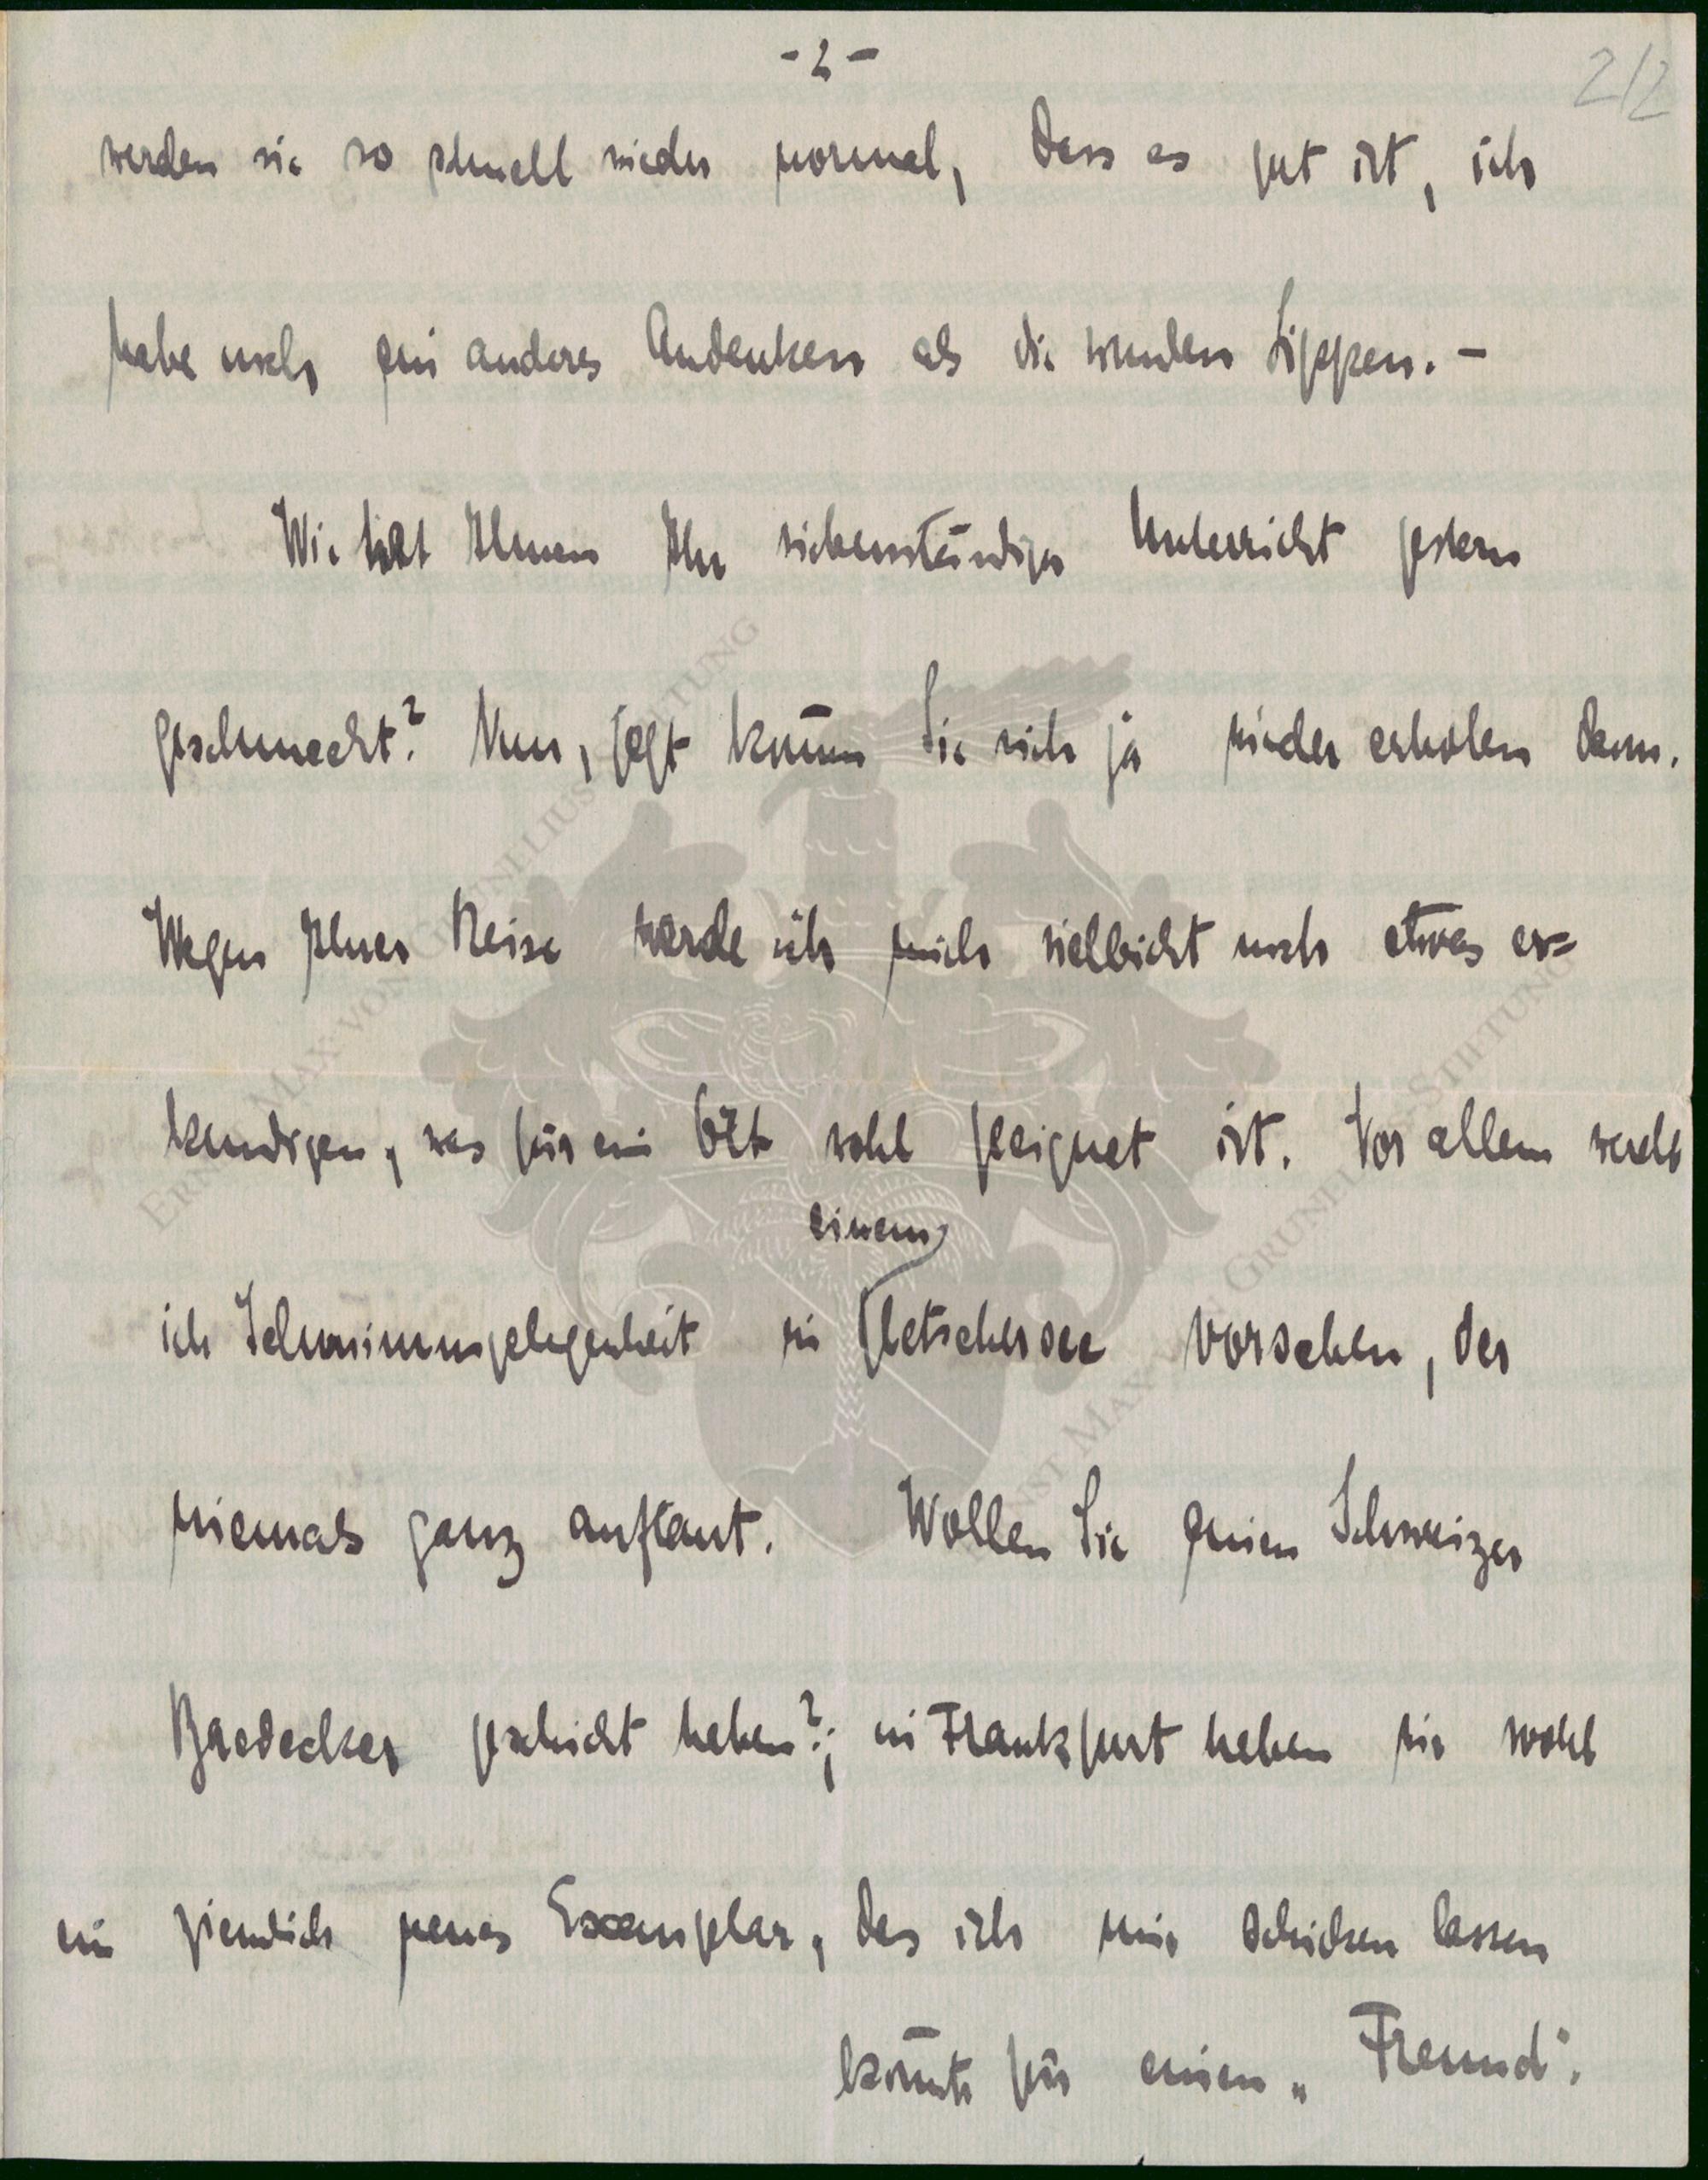 - 2 -
2/2
werden sie so schnell wieder normal, dass es gut ist, ich
habe noch ein anderes Andenken als die wunden Lippen. -
Wie hat Ihnen Ihr siebenstündiger Unterricht gestern
geschmeckt? Nun, jetzt können Sie sich ja wieder erholen davon.
Wegen Ihrer Reise werde ich mich vielleicht noch etwas er=
kundigen, was für ein Ort wohl geeignet ist. Vor allem werde
einem
ich Schwimmgelegenheit in Gletschersee vorsehen, der
niemals ganz auftaut. Wollen Sie einen Schweizer
Baedecker geschickt haben?; in Frankfurt haben wir wohl
ein ziemlich neues Exemplar, das ich mir schicken lassen
könnte für einen „Freund“.
ERNST MAX VON GRUNELIUS-STIFTUNG
ERNST MAX VON GRUNELIUS-STIFTUNG